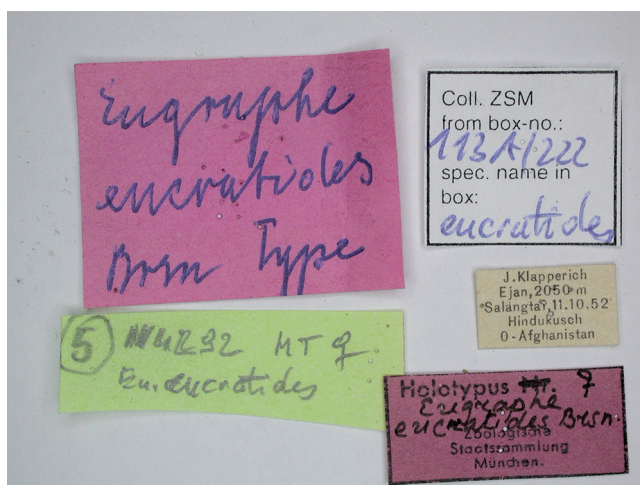 Eugraphe
eucratides
Brsn Type
Coll. ZSM
from box-no.:
113A/222
spec. name in
box:
eucratides
J.Klapperich
Ejan, 2050 m
Salangtal, 11.10.52
Hindukusch
O-Afghanistan
5 HT ♀
Eu. eucratides
Holotypus Nr. ♀
Eugraphe
eucratides Brsn.
Zoologische
Staatssammlung
München.